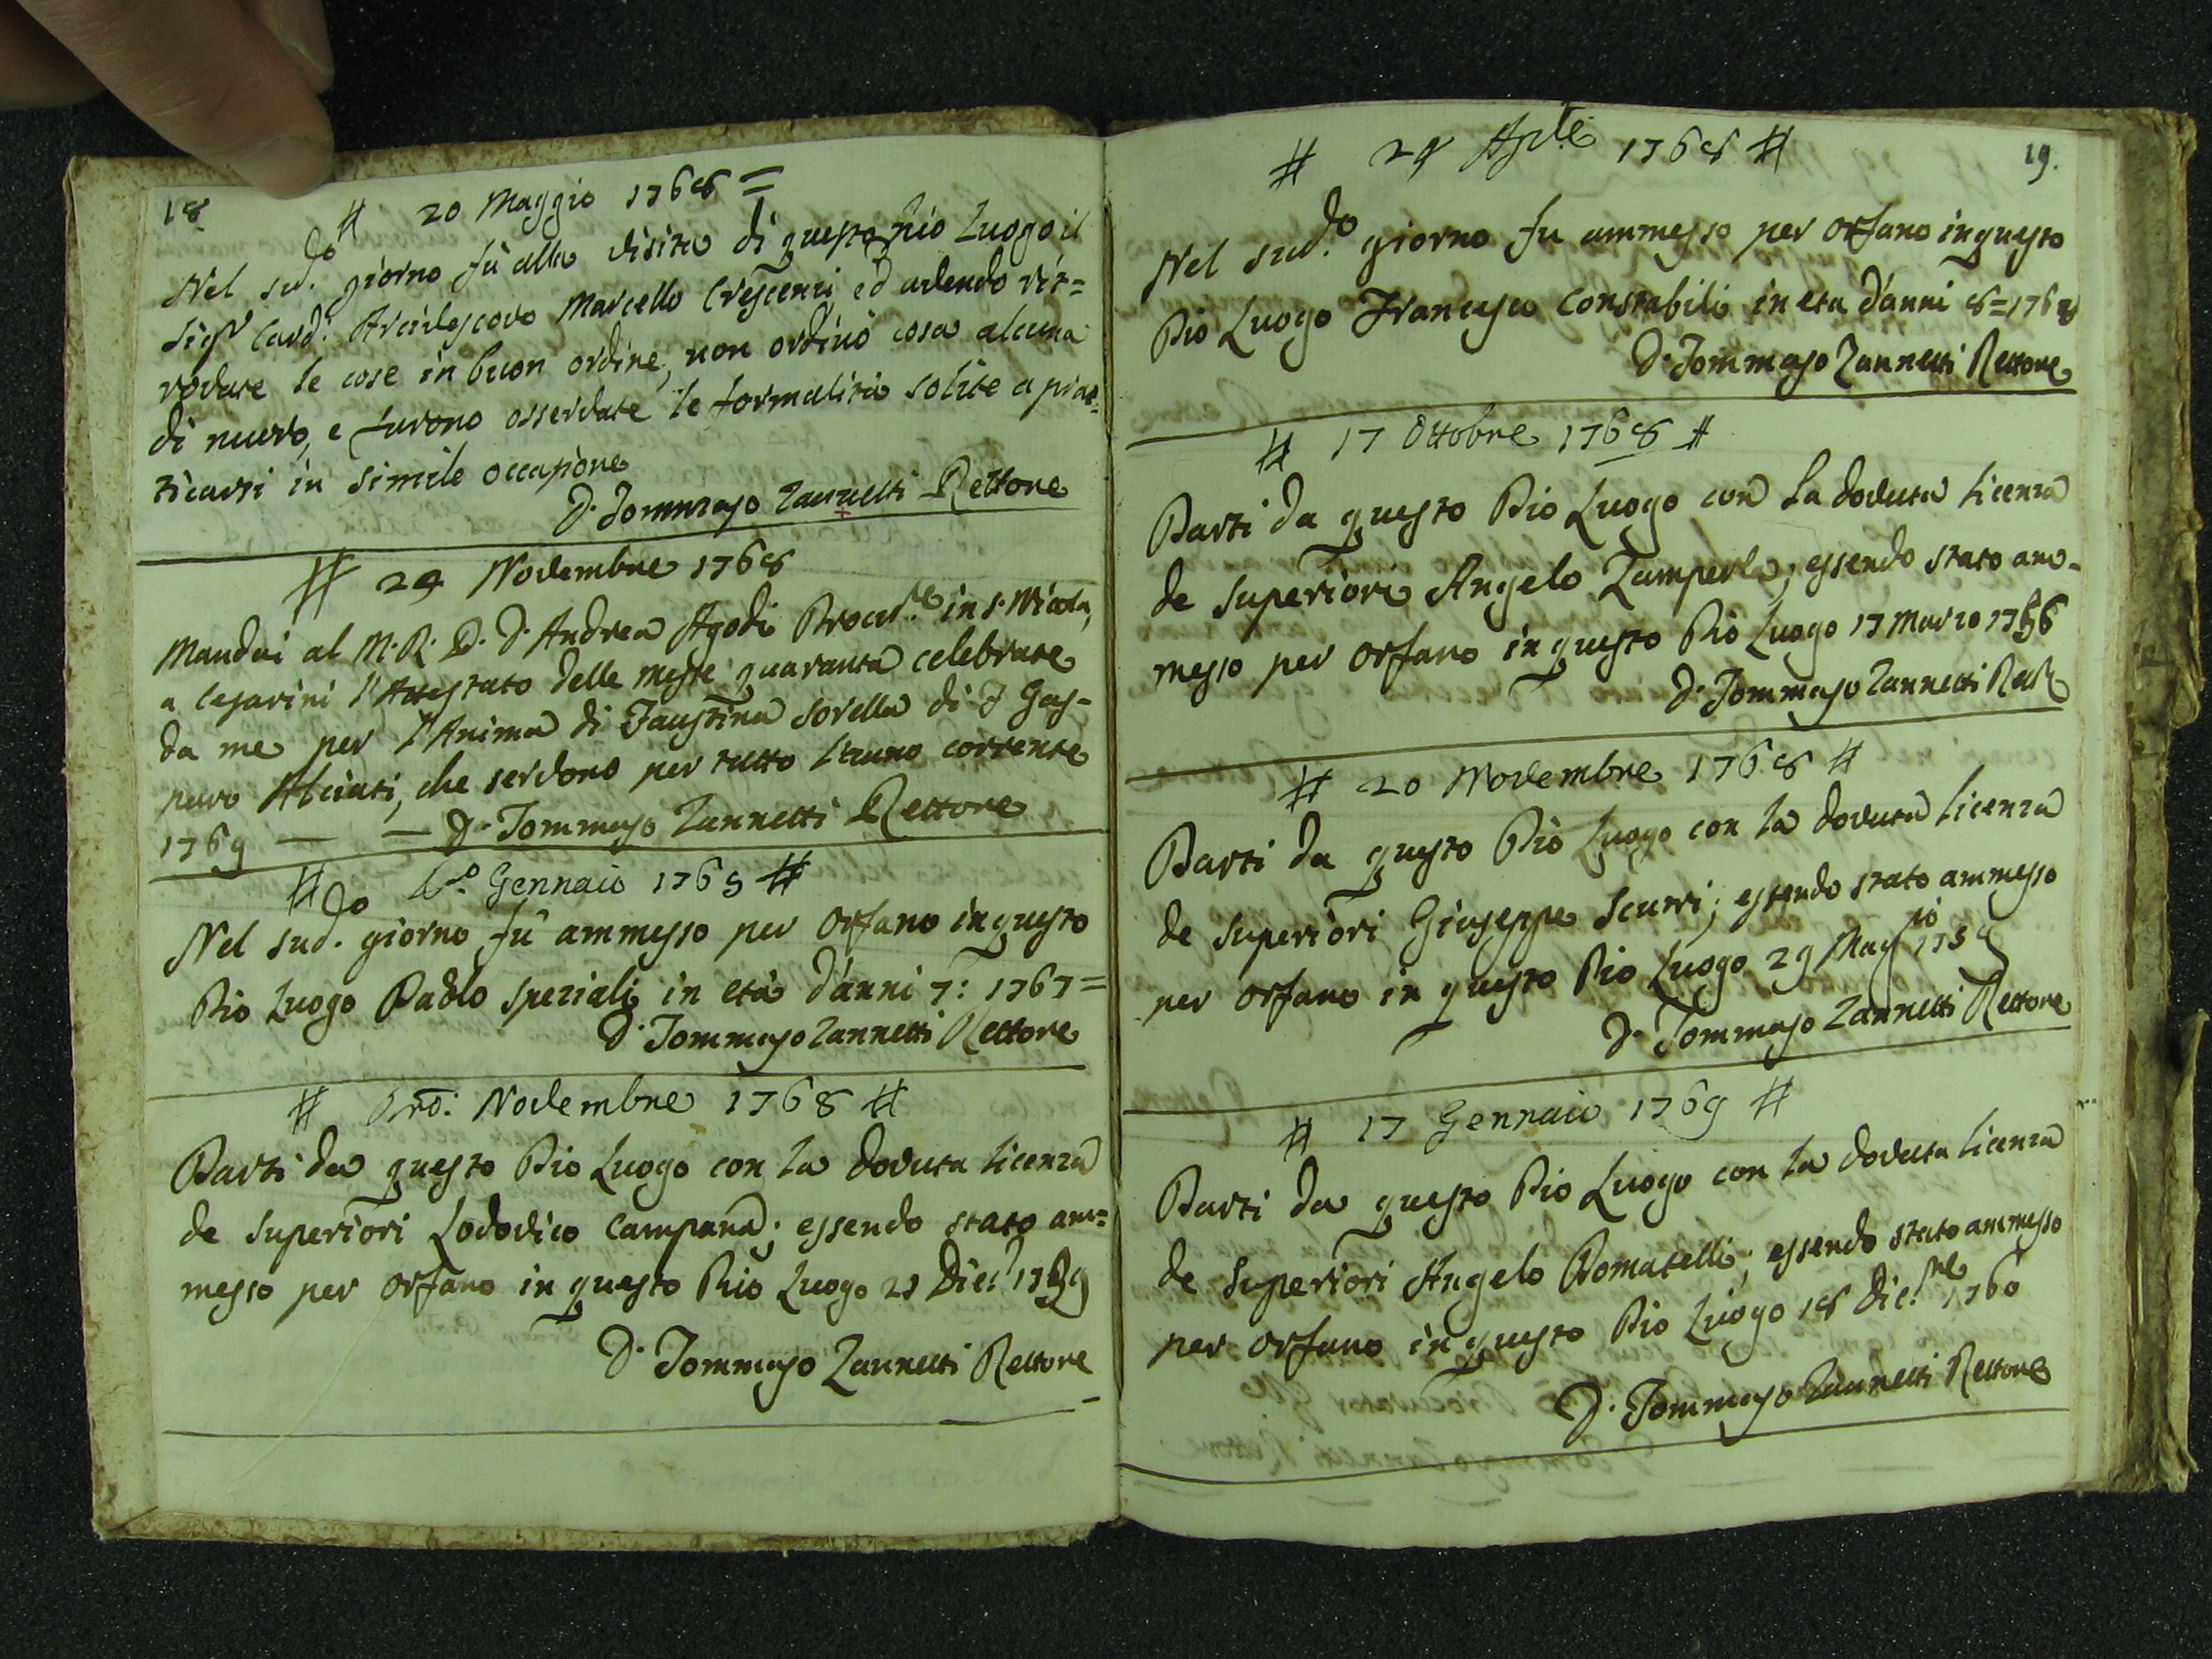 18.
# 20 Maggio 1768 =
Nel sud.do giorno fù alla visita di questo Pio Luogo il
Sigr Card: Arcivescovo Marcello Crescenzi ed avendo rit=
rovate le cose in buon ordine, non ordinò cosa alcuna
di nuovo, e furono osservate le formalità solite a prat=
ticarsi in simile occasione
D. Tommaso Zannetti Rettore
# 24 Novembre 1768
Mandai al M. R. D. D. Andrea Agodi Procur.re in S. Nicola
a Cesarini l'Attestato delle messe quaranta celebrate
da me per l'Anima di Faustina Sorella di Gas-
paro Alciati, che servono per tutto l'anno corrente
1769 — — D. Tommaso Zannetti Rettore
# Gennaio 176 #
Nel sud.do giorno fù ammesso per Orfano in questo
Pio Luogo Paolo Speziali in età d'anni 7: 1767=
D. Tommaso Zannetti Rettore
# Novembre 1768 #
Parti da questo Pio Luogo con la dovuta licenza
de Superiori Lodovico Campana; essendo stato am=
messo per Orfano in questo Pio Luogo 21 Dic. 1759
D. Tommaso Zannetti Rettore
19.
# 24 Aple 1768 #
Nel sud.do giorno fu ammesso per Orfano in questo
Pio Luogo Francesco Constabili in eta d'anni 8=1768
D. Tommaso Zannetti Rettore
# 17 Ottobre 1768 #
Parti da questo Pio Luogo con la dovuta licenza
de Superiori Angelo Zamperla; essendo stato am-
messo per Orfano in questo Pio Luogo 17 Marzo 1756
D. Tommaso Zannetti Rett
# 20 Novembre 1768 #
Parti da questo Pio Luogo con la dovuta licenza
de Superiori Giuseppe Scurri; essendo stato ammesso
per Orfano in questo Pio Luogo 29 Maggio 1759
D. Tommaso Zannetti Rettore
# 17 Gennaio 1769 #
Parti da questo Pio Luogo con la dovuta licenza
de Superiori Angelo Bomatelli; essendo stato ammesso
per Orfano in questo Pio Luogo 18 Dic.re 1760
D. Tommaso Zannetti Rettore